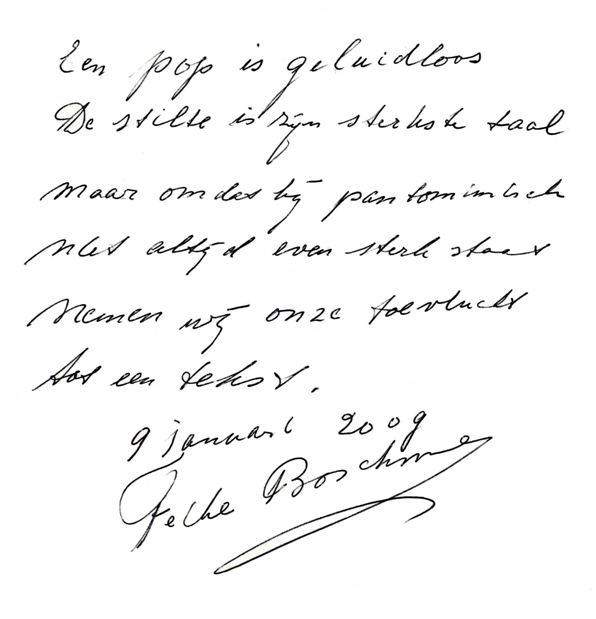 Een pop is geluidloos
De stilte is zijn sterkste taal
maar omdat hij pantomimisch
niet altijd even sterk staat
nemen wij onze toevlucht
tot een tekst.
9 januari 2009
Feike Boschma